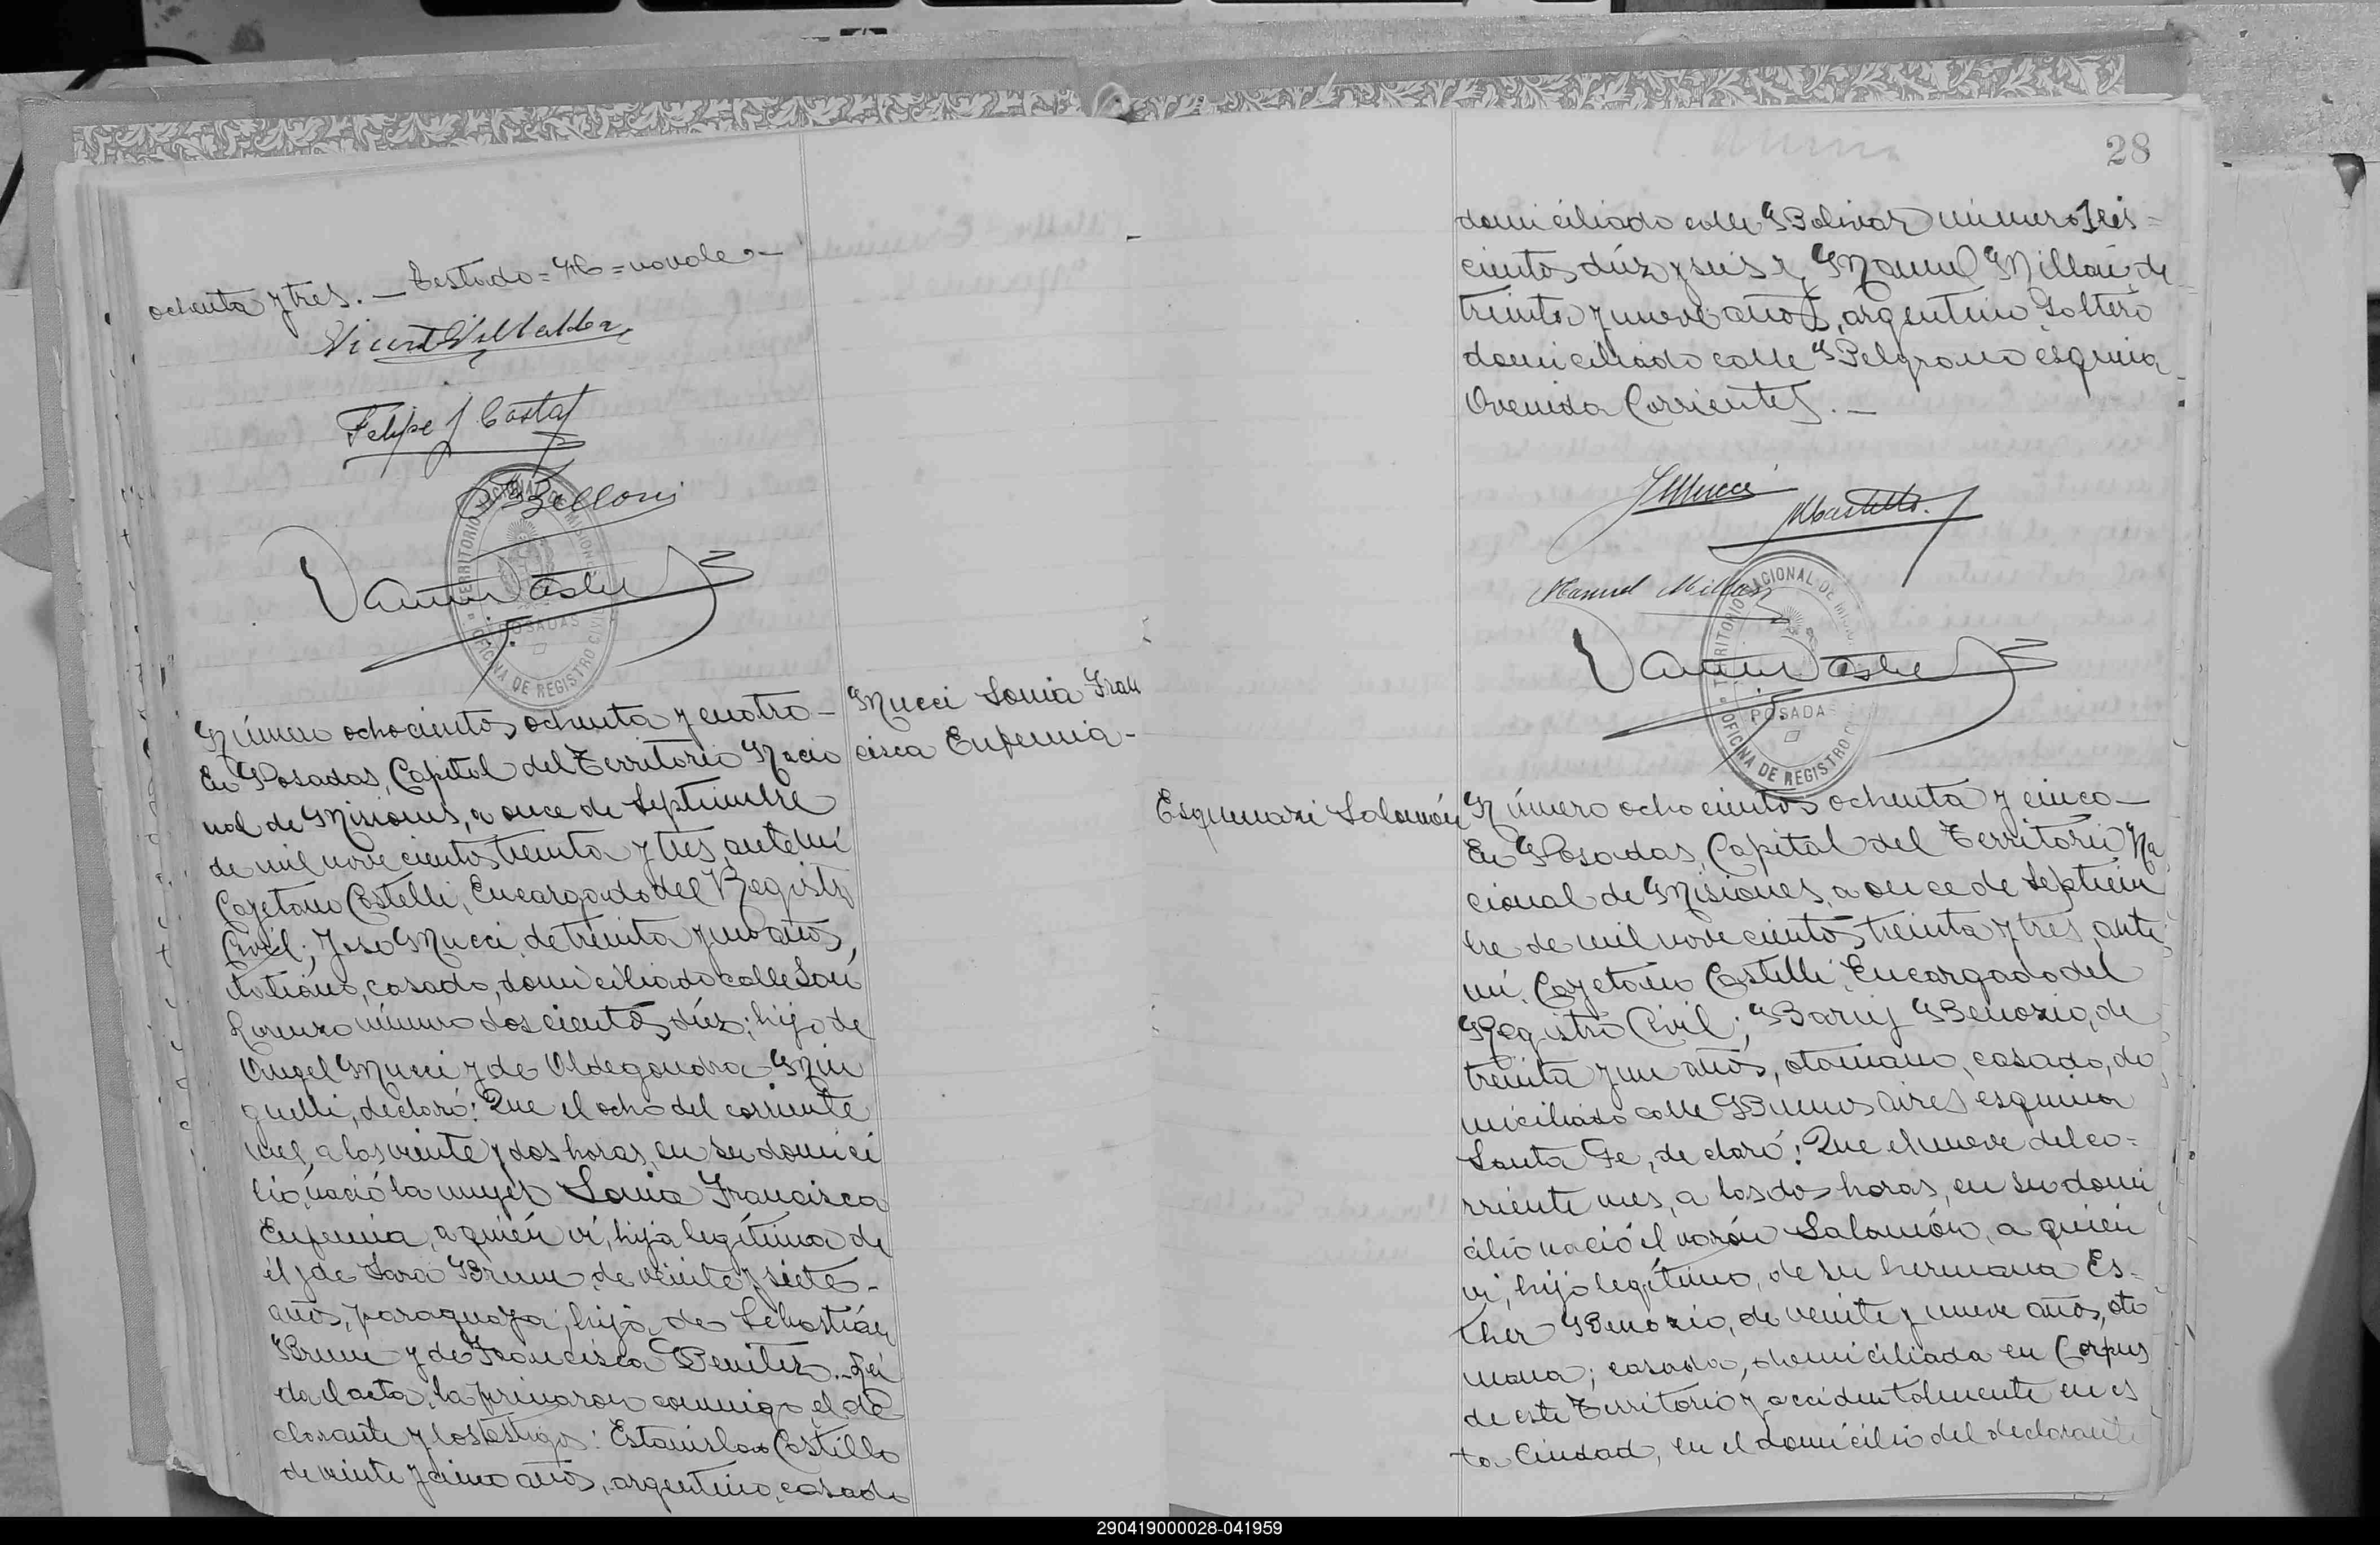 ochenta y tres. — Testado = 46 = no vale. —
Vicente Villalba
Felipe J Costa
Belloni
TERRITORIO NACIONAL DE MISIONES
POSADAS
OFICINA DE REGISTRO CIVIL
Número ochocientos ochenta y cuatro —
Mucci Sonia Fran
cisca Eufemia -
En Posadas, Capital del Territorio Nacio
nal de Misiones, a once de Septiembre
de mil novecientos treinta y tres, ante mí
Cayetano Castelli, Encargado del Registro
Civil; José Mucci, de treinta y un años,
italiano, casado, domiciliado calle San
Lorenzo número doscientos diéz; hijo de
Angel Mucci y de Aldegondra Min
guelli, declaró: Que el ocho del corriente
mes, a las veinte y dos horas, en su domici
lio, nació la mujer Sonia Francisca
Eufemia, a quién ví, hija legítima de
él y de Sara Brum, de veinte y siete -
años, paraguaya, hija de Sebastián
Brum y de Francisca Benitez. - Leí
da el acta, la firmaron conmigo el de
clarante y los testigos: Estanislao Castillo
de veinte y cinco años, argentino, casado
28
domiciliado calle Bolivar número Tres =
cientos diéz y seis y Manuel Millán, de
treinta y nueve años, argentino Soltero
domiciliado calle Belgrano esquina
Avenida Corrientes. —
JMucci
Castillo
Manuel Millán
TERRITORIO NACIONAL DE MISIONES
POSADAS
OFICINA DE REGISTRO CIVIL
Esquenazi Salomón
Número ochocientos ochenta y cinco —
En Posadas, Capital del Territorio Na
cional de Misiones, a once de Septiem
bre de mil novecientos treinta y tres, ante
mí. Cayetano Castelli, Encargado del
Registro Civil; Baruj Benozio, de
treinta y un años, otomano, casado, do
miciliado calle Buenos Aires esquina
Santa Fe, declaró: Que el nueve del co =
rriente mes, a las dos horas, en su domi
cilio nació el varón Salomón, a quien
ví, hijo legítimo, de su hermana Es -
ther Benozio, de veinte y nueve años, oto
mana; casada, domiciliada en Corpus
de este Territorio y accidentalmente en es
ta Ciudad, en el domicilio del declarante
290419000028-041959